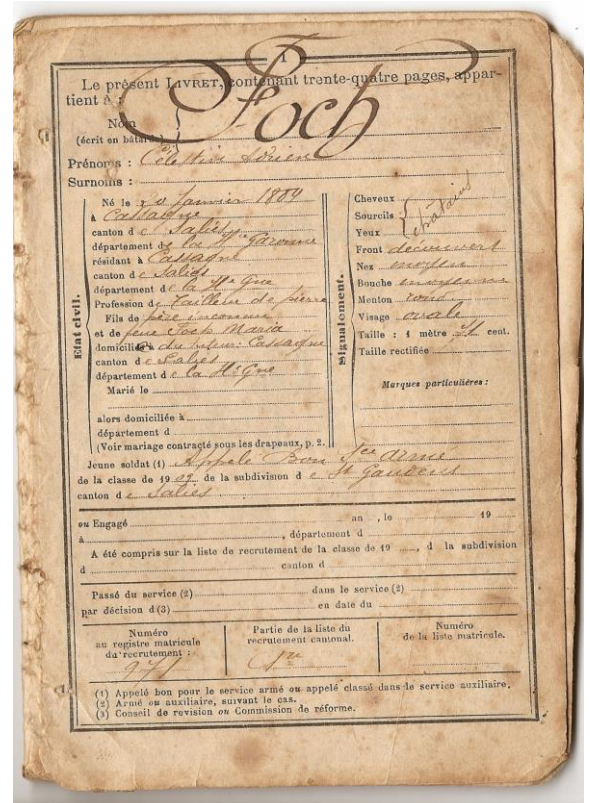 1
Le présent LIVRET, contenant trente-quatre pages, appar-
tient à :
Nom
(écrit en bâtarde)
Foch
Prénoms : Célestin Adrien
Surnoms :
Etat civil.
Né le 20 Janvier 1889
à Cassagne
canton de Salies
département de la Hte Garonne
résidant à Cassagne
canton de Salies
département de la Hte Gne
Profession de tailleur de pierre
Fils de père inconnu
et de feue Foch Maria
domiciliés du tuteur: Cassagne
canton de Salies
département de la Hte Gne
Marié le
alors domiciliée à
département d
(Voir mariage contracté sous les drapeaux, p. 2.
Signalement.
Cheveux
Sourcils
Yeux
châtains
Front découvert
Nez moyen
Bouche moyenne
Menton rond
Visage ovale
Taille : 1 mètre cent.
Taille rectifiée
Marques particulières :
Jeune soldat (1) Appelé Bon Sce armé
de la classe de 1909 de la subdivision de St Gaudens
canton de Salies
ou Engagé an , le 19
à , département d
A été compris sur la liste de recrutement de la classe de 19 , d la subdivision
d canton d
Passé du service (2) dans le service (2)
par décision d (3) en date du
Numéro
au registre matricule
du recrutement :
971
Partie de la liste du
recrutement cantonal.
1re
Numéro
de la liste matricule.
(1) Appelé bon pour le service armé ou appelé classé dans le service auxiliaire.
(2) Armé ou auxiliaire, suivant le cas.
(3) Conseil de revision ou Commission de réforme.